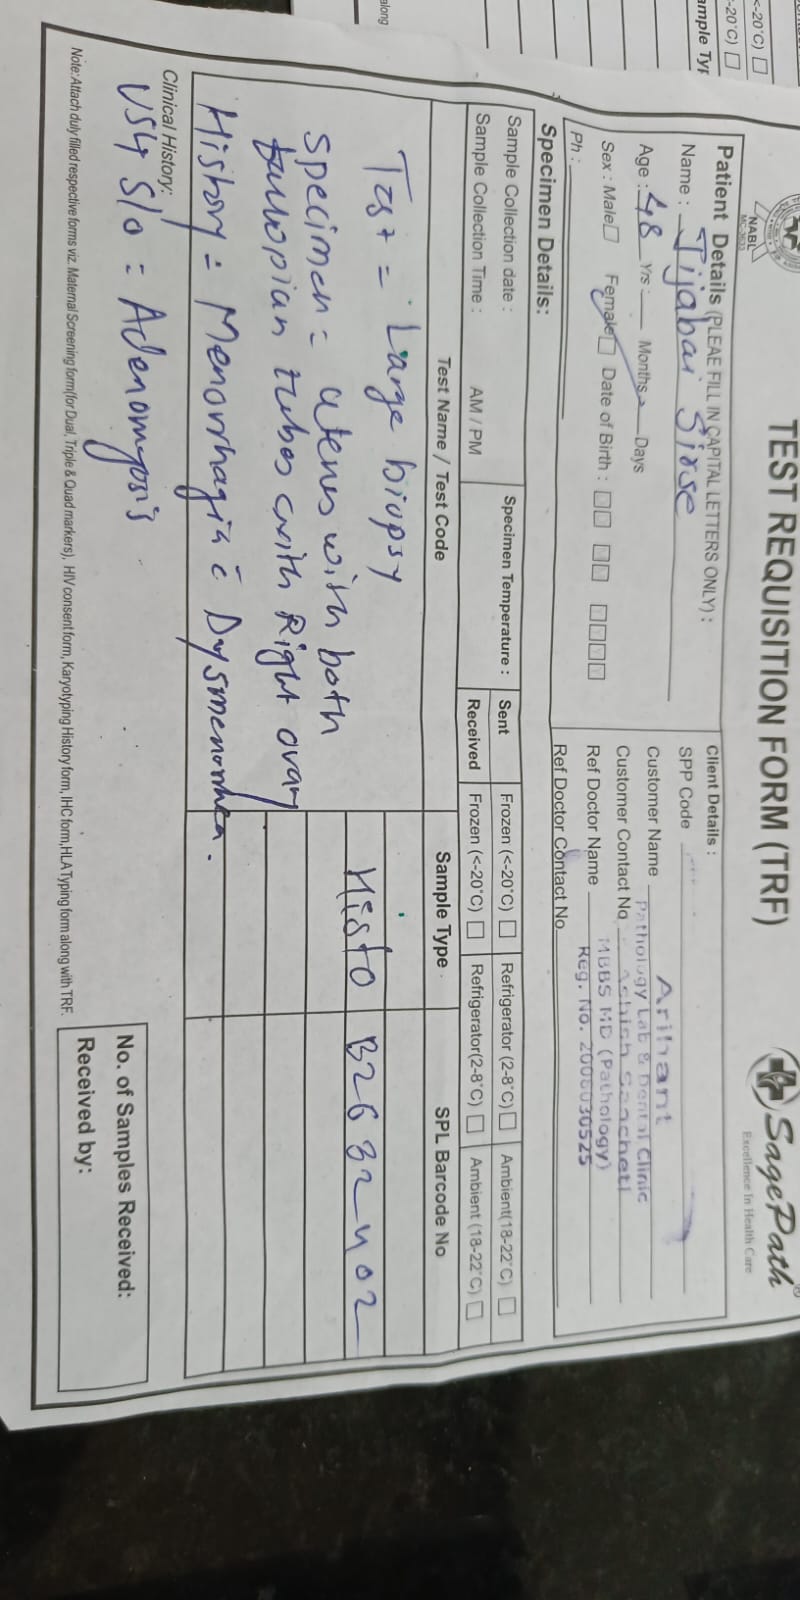 TEST REQUISITION FORM (TRF)
SagePath®
Excellence In Health Care
NABL
Patient Details (PLEAE FILL IN CAPITAL LETTERS ONLY) :
Name : Jijabai Sirse
Age : 48 Yrs : Months Days
Sex : Male Female Date of Birth :
Ph :
Client Details :
SPP Code
Arihant
Customer Name Pathology Lab & Dental Clinic
Customer Contact No Ashish
MBBS MD (Pathology)
Ref Doctor Name Reg. No. 2006030525
Ref Doctor Contact No
Specimen Details:
Sample Collection date : Specimen Temperature : Sent Frozen (<-20°C) Refrigerator (2-8°C) Ambient(18-22°C)
Sample Collection Time : AM / PM Received Frozen (<-20°C) Refrigerator(2-8°C) Ambient (18-22°C)
Test Name / Test Code Sample Type SPL Barcode No
Test = Large biopsy Histo B2632402
Specimen = uterus with both
fallopian tubes with Right ovary
History = Menorrhagia c̄ Daysmenorrhea.
Clinical History:
USG S/o = Adenomyosis
No. of Samples Received:
Received by:
Note:Attach duly filled respective forms viz. Maternal Screening form(for Dual, Triple & Quad markers), HIV consent form, Karyotyping History form, IHC form,HLA Typing form along with TRF.
along
<-20°C)
-20°C)
ample Typ